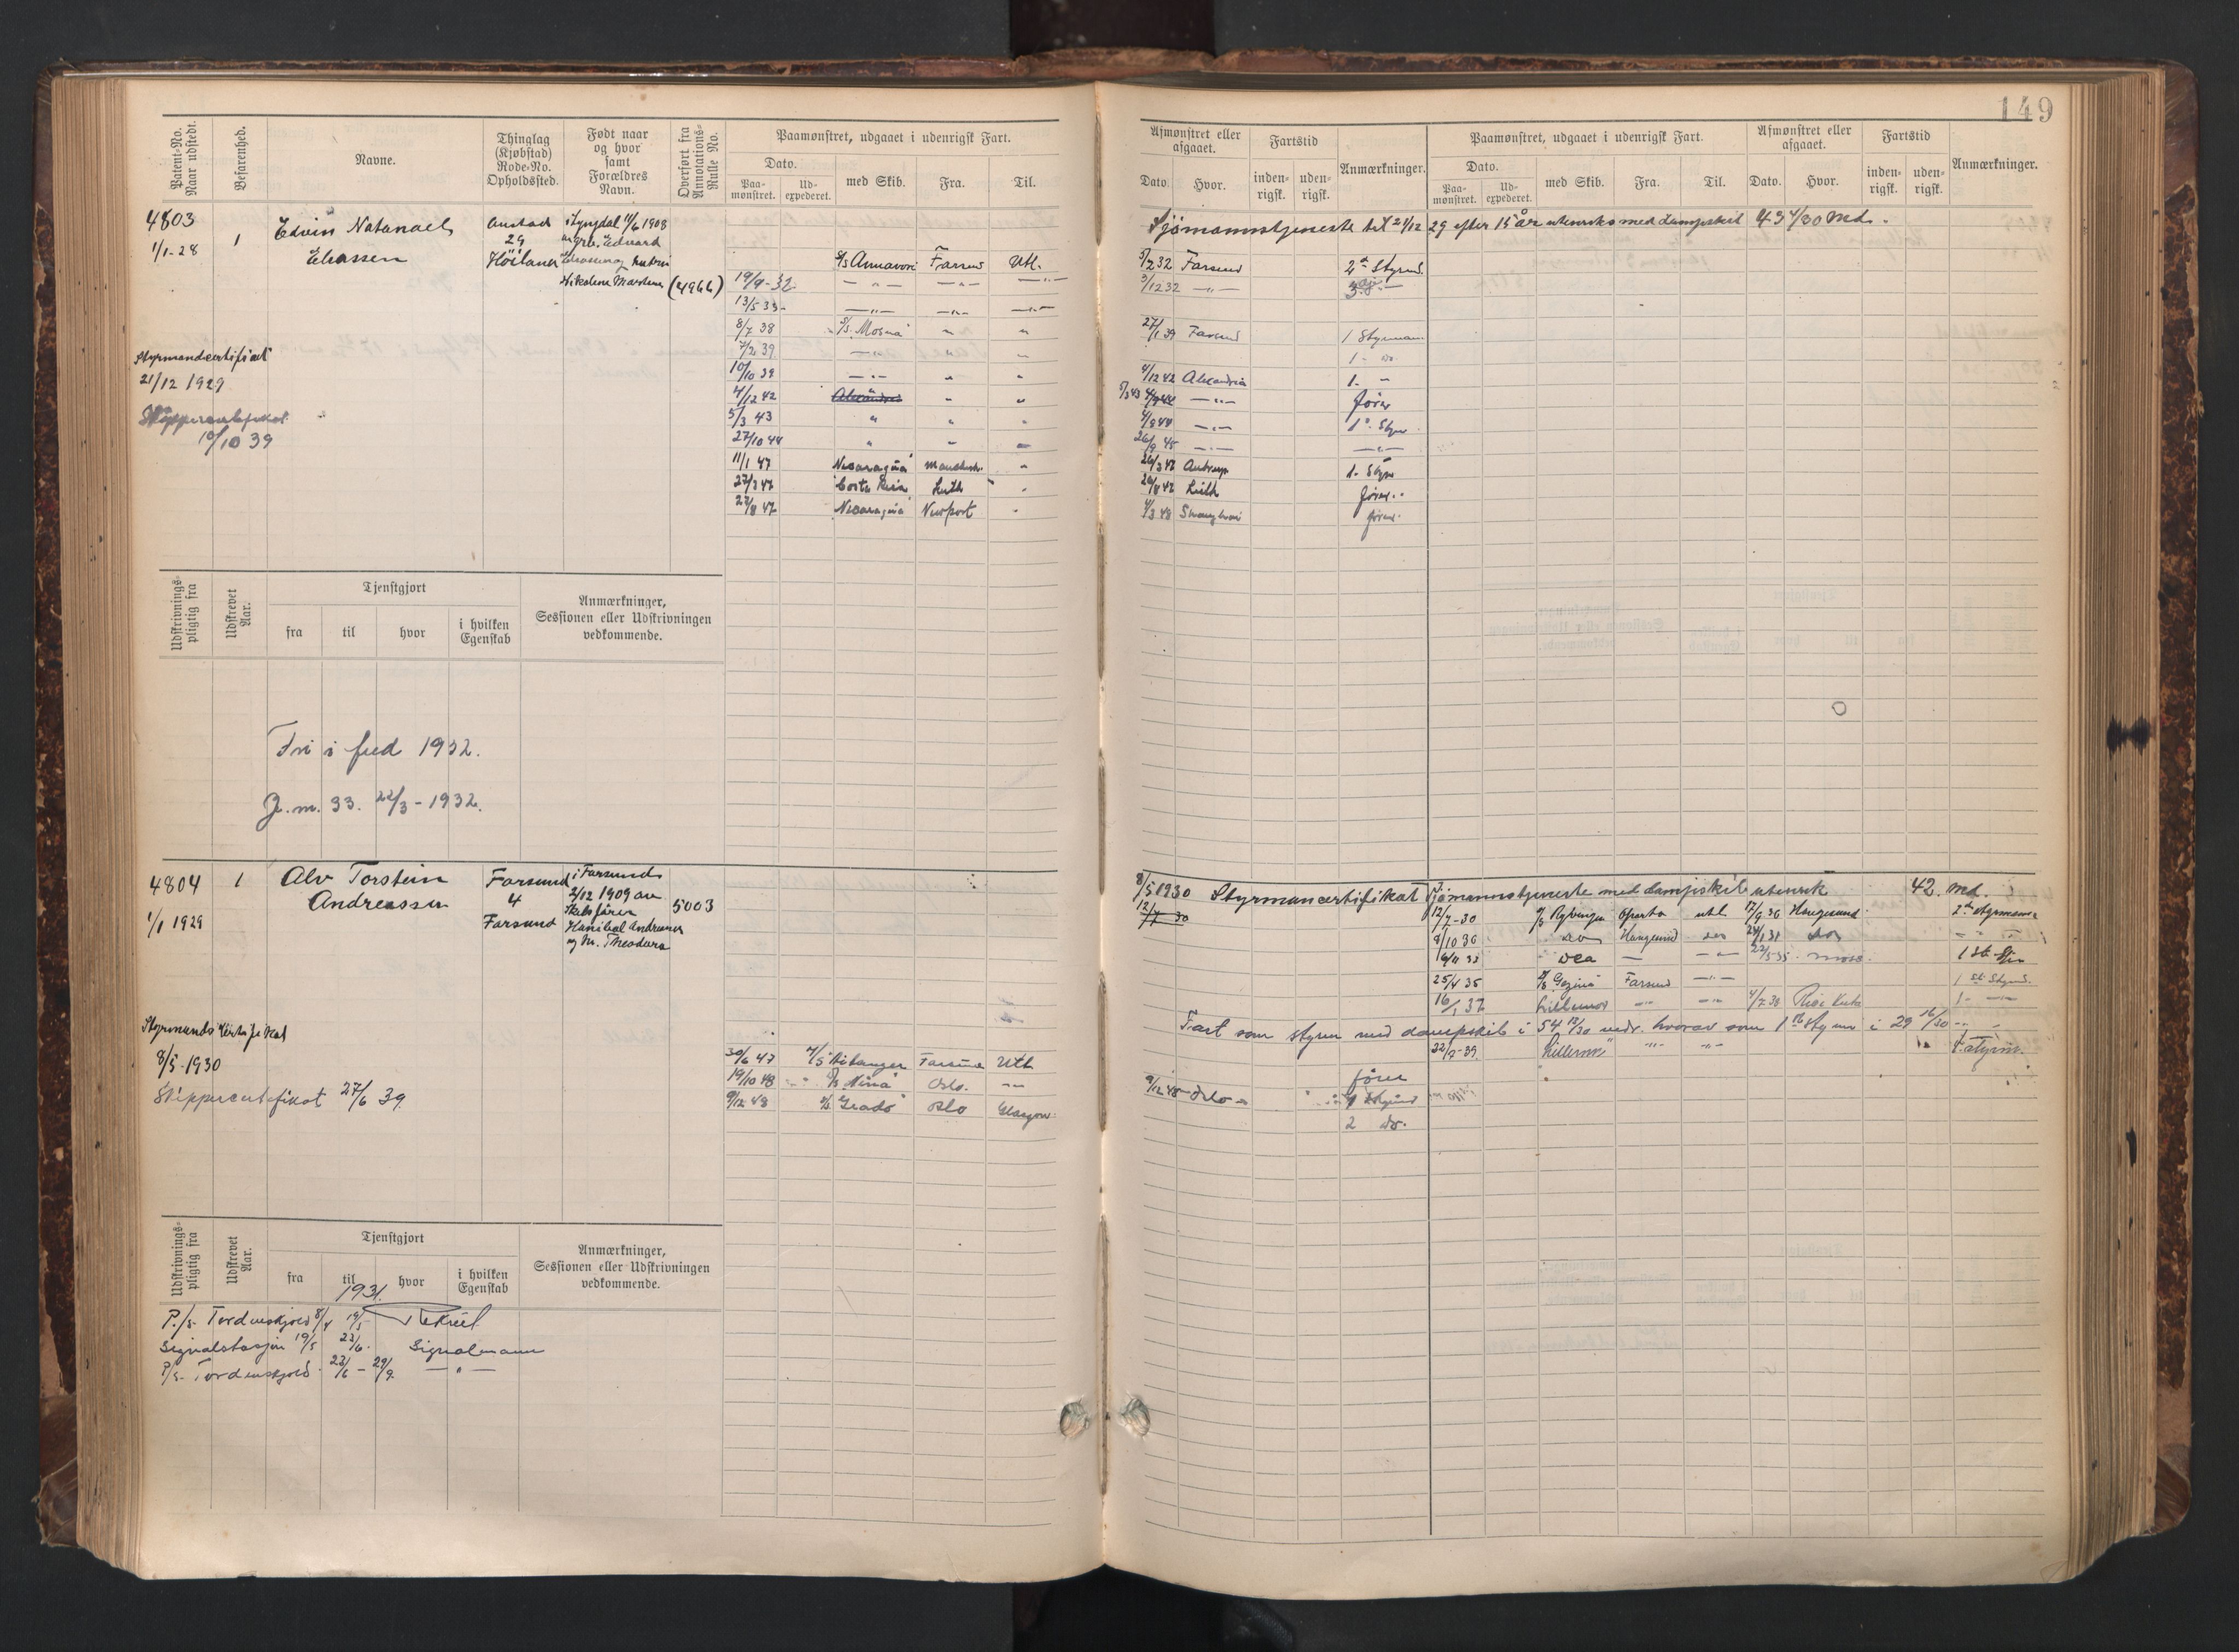 149
Patent-No. Naar udstedt.
Befarenhed.
Navne.
Thinglag (Kjøbstad) Rode-No. Opholdssted.
Født naar og hvor samt Forældres Navn.
Overført fra Annotations-Rulle No.
Paamønstret, udgaaet i udenrigsk Fart.
Dato.
Paa-mønstret.
Ud-expederet.
med Skib.
Fra.
Til.
4803
1/1-28
1
Edvin Natanael
Eliassen
Austad
29
Höiland
i Lyngdal 11/6 1908
av grb. Edvard
Eliassen og hustru
Nikoline Martine
(4966)
S/S Annavore Farsund Utl.
19/9-32 — „ — — „ — — „ —
13/5 33- — „ — — „ — — „ —
8/7 38 S/S. Mosna „ „
7/2 39 — „ — „ „
10/10 39 — „ — „ „
4/12 42 „ „
5/3 43 „ „ „
27/10 44 „ „ „
11/1 47 Nicaragua Manchest. „
27/3 47 Costa Rica Leith „
27/8 47 Nicaragua Newport „
Styrmandcertifikat
21/12 1929
Skippercertifikat
10/10 39
Udskrivnings-pligtig fra
Udskrevet Aar.
Tjenstgjort
fra
til
hvor
i hvilken Egenskab
Anmærkninger, Sessionen eller Udskrivningen vedkommende.
Fri i fred 1932.
J. m. 33. 22/3 - 1932.
4804
1/1 1929
1
Alv Torstein
Andreassen
Farsund
4
Farsund
i Farsund
2/12 1909 av
Skibsfører
Hanibal Andreassen
og h. Theodora
5003
Styrmands Certifikat
8/5-1930
Skippercertifikat 27/6 39.
30/6 47 Farsund Utl
19/10 48 S/S „Nina" Oslo. — „ —
9/12 48 S/S „Grado" Oslo Glasgow.
Udskrivnings-pligtig fra
Udskrevet Aar.
Tjenstgjort
fra
til
hvor
i hvilken Egenskab
Anmærkninger, Sessionen eller Udskrivningen vedkommende.
1931.
P./S. Tordenskjold 8/4 19/5 Rekrut
Signalstasjon 19/5 23/6. Signalmann
P/S. Tordenskjold. 23/6 - 29/9. — „ —
Afmønstret eller afgaaet.
Dato.
Hvor.
Fartstid
inden-rigsk.
uden-rigsk.
Anmærkninger.
Paamønstret, udgaaet i udenrigsk Fart.
Dato.
Paa-mønstret.
Ud-expederet.
med Skib.
Fra.
Til.
Afmønstret eller afgaaet.
Dato.
Hvor.
Fartstid
inden-rigsk.
uden-rigsk.
Anmærkninger.
Sjömannstjeneste til 21/12 29 efter 15 år utenriks med dampskib 43 4/30 Md.
3/2 32 Farsund 2n Styrmd.
3/12 32 — „ —
27/1 39 Farsund 1 Styrmann
1 - do.
4/12 42 Alexandria 1. „
— „ — fører
4/9 44 — „ — 1. Styrm
26/9 45 — „ — — „ —
26/3 47 Antwerp 1. Styrm
26/8 47 Leith fører.
4/3 48 fører.
8/5 1930 Styrmancertifikat Sjömannstjeneste med dampskib utenrik 42. Md.
12/7 30
12/7-30 Oporto utl 17/9 30 Haugesund 2den styrmann
8/10 30 do Haugesund do 24/1 31 do — „ —
— „ — 22/5 35 Moss. 1 ste Stm
25/4 35 Farsund — „ — 1 ste Styrmd.
16/1 37 — „ — — „ — 4/7 38 1 - — „ —
Fart som styrm med dampskib i 54 18/30 mdr. hvorav som 1ste styrm i 29 16/30
22/7-39. — „ — — „ — 1. styrm.
fører
9/12 48 Oslo 1 Styrmd
2 do.